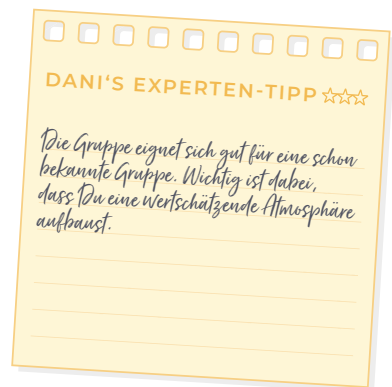 DANI'S EXPERTEN-TIPP
Die Gruppe eignet sich gut für eine schon
bekannte Gruppe. Wichtig ist dabei,
dass Du eine wertschätzende Atmosphäre
aufbaust.